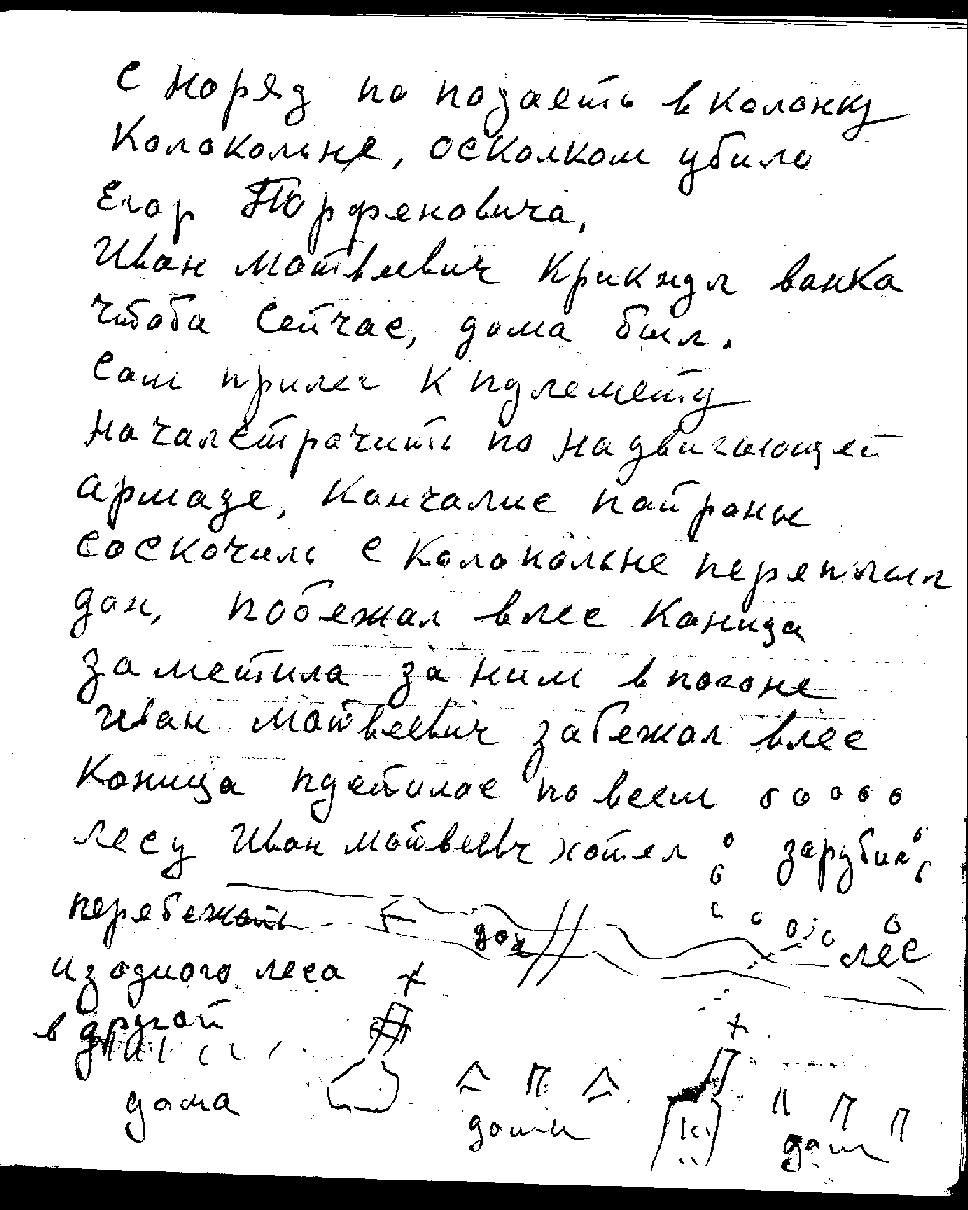 Сноряд по подаеть в колонку
Колокольне, осколком убило
Егор Порфеновича.
Иван Матвеевич крикнул ванка
чтоба сейчас, дома был.
Сам прилег к пулемету
начал строчить по надвигающей
армаде, Кончалис патроны
соскочиль с колокольне переплыл
дон, побежал влес Коница
заметила за ним в погоне
Иван Матвеевич забежал влес
Коница пустилос по всем
лесу Иван Матвеевч хотел зарубил
перебежать дон лес
из одного леса
в другой
дама доми дам